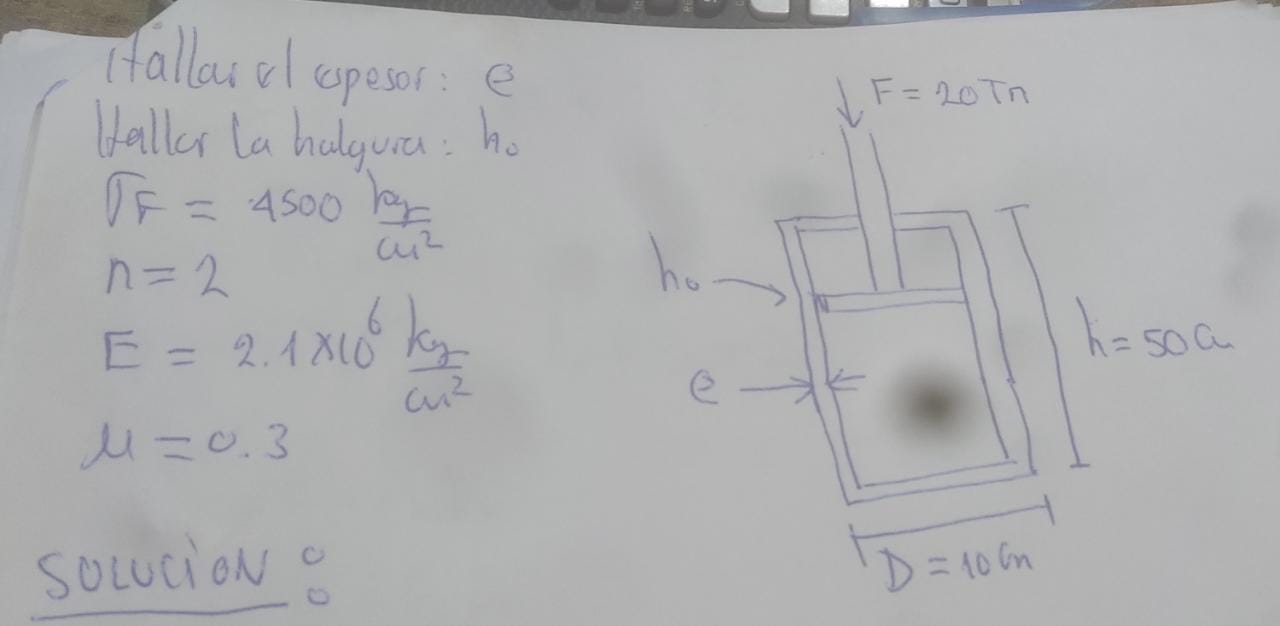 Hallar el espesor: e
Hallar la halgura: h₀
σF = 4500 kg/cm²
n = 2
E = 2.1×10⁶ kg/cm²
μ = 0.3
SOLUCIÓN :
F = 20 Tn
h₀
e
h = 50 Cm
D = 10 Cm